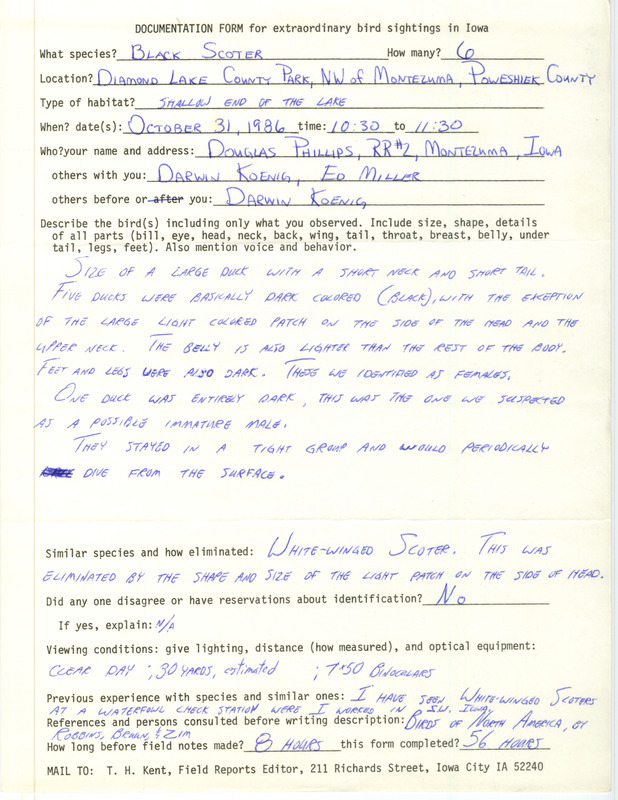 DOCUMENTATION FORM for extraordinary bird sightings in Iowa
What species? BLACK SCOTER How many? 6
Location? DIAMOND LAKE COUNTY PARK, NW OF MONTEZUMA, POWESHIEK COUNTY
Type of habitat? SHALLOW END OF THE LAKE
When? date(s): OCTOBER 31, 1986 time: 10:30 to 11:30
Who? your name and address: DOUGLAS PHILLIPS, RR#2, MONTEZUMA, IOWA
others with you: DARWIN KOENIG, ED MILLER
others before or after you: DARWIN KOENIG
Describe the bird(s) including only what you observed. Include size, shape, details
of all parts (bill, eye, head, neck, back, wing, tail, throat, breast, belly, under
tail, legs, feet). Also mention voice and behavior.
SIZE OF A LARGE DUCK WITH A SHORT NECK AND SHORT TAIL.
FIVE DUCKS WERE BASICALLY DARK COLORED (BLACK), WITH THE EXCEPTION
OF THE LARGE LIGHT COLORED PATCH ON THE SIDE OF THE HEAD AND THE
UPPER NECK. THE BELLY IS ALSO LIGHTER THAN THE REST OF THE BODY.
FEET AND LEGS WERE ALSO DARK. THESE WE IDENTIFIED AS FEMALES.
ONE DUCK WAS ENTIRELY DARK, THIS WAS THE ONE WE SUSPECTED
AS A POSSIBLE IMMATURE MALE.
THEY STAYED IN A TIGHT GROUP AND WOULD PERIODICALLY
DIVE FROM THE SURFACE.
Similar species and how eliminated: WHITE-WINGED SCOTER. THIS WAS
ELIMINATED BY THE SHAPE AND SIZE OF THE LIGHT PATCH ON THE SIDE OF HEAD.
Did any one disagree or have reservations about identification? No
If yes, explain: N/A
Viewing conditions: give lighting, distance (how measured), and optical equipment:
CLEAR DAY ; 30 YARDS, estimated ; 7x50 BINOCULARS
Previous experience with species and similar ones: I HAVE SEEN WHITE-WINGED SCOTERS
AT A WATERFOWL CHECK STATION WERE I WORKED IN S.W. IOWA.
References and persons consulted before writing description: BIRDS OF NORTH AMERICA, BY
ROBBINS, BRUUN, & ZIM
How long before field notes made? 8 HOURS this form completed? 56 HOURS
MAIL TO: T. H. Kent, Field Reports Editor, 211 Richards Street, Iowa City IA 52240